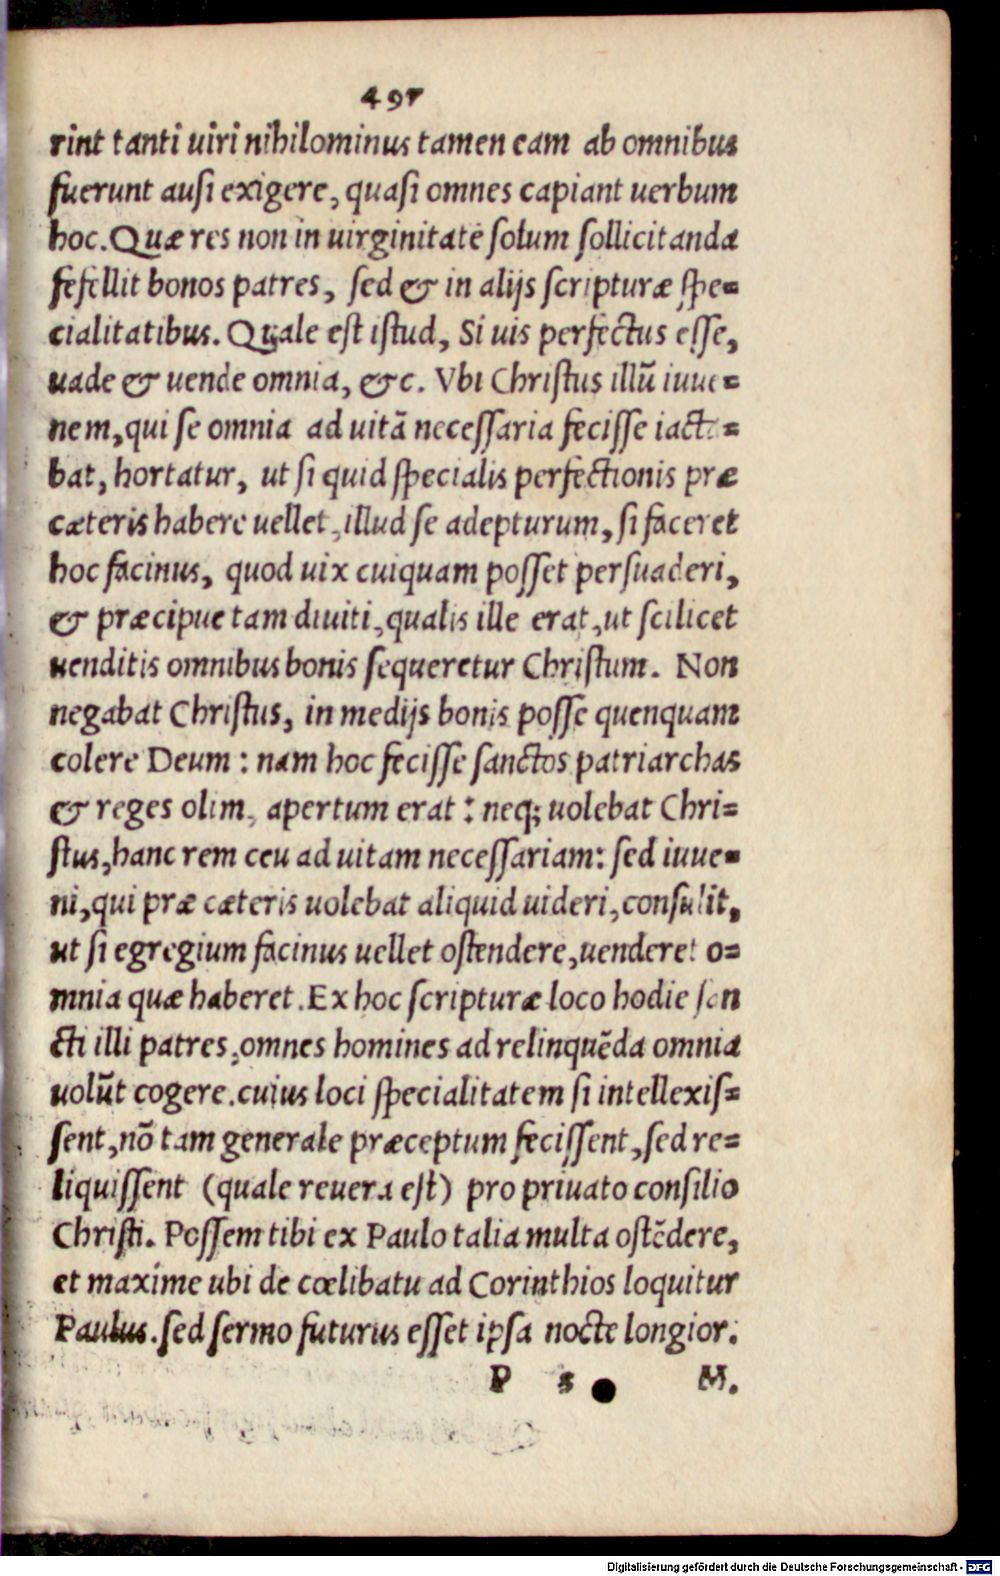 497
rint tanti uiri nihilominus tamen eam ab omnibus
fuerunt ausi exigere, quasi omnes capiant uerbum
hoc. Quæ res non in uirginitate solum sollicitanda
fefellit bonos patres, sed & in alijs scripturæ spe=
cialitatibus. Quale est istud, Si uis perfectus esse,
uade & uende omnia, &c. Vbi Christus illũ iuue=
nem, qui se omnia ad uitã necessaria fecisse iacta=
bat, hortatur, ut si quid specialis perfectionis præ
cæteris habere uellet, illud se adepturum, si faceret
hoc facinus, quod uix cuiquam posset persuaderi,
& præcipue tam diuiti, qualis ille erat, ut scilicet
uenditis omnibus bonis sequeretur Christum. Non
negabat Christus, in medijs bonis posse quenquam
colere Deum : nam hoc fecisse sanctos patriarchas
& reges olim, apertum erat : neq; uolebat Chri=
stus, hanc rem ceu ad uitam necessariam: sed iuue=
ni, qui præ cæteris uolebat aliquid uideri, consulit,
ut si egregium facinus uellet ostendere, uenderet o=
mnia quæ haberet. Ex hoc scripturæ loco hodie san
cti illi patres, omnes homines ad relinquẽda omnia
uolũt cogere. cuius loci specialitatem si intellexis=
sent, nõ tam generale præceptum fecissent, sed re=
liquissent (quale reuera est) pro priuato consilio
Christi. Possem tibi ex Paulo talia multa ostẽdere,
et maxime ubi de cœlibatu ad Corinthios loquitur
Paulus. sed sermo futurus esset ipsa nocte longior.
P s M.
Digitalisierung gefördert durch die Deutsche Forschungsgemeinschaft - DFG